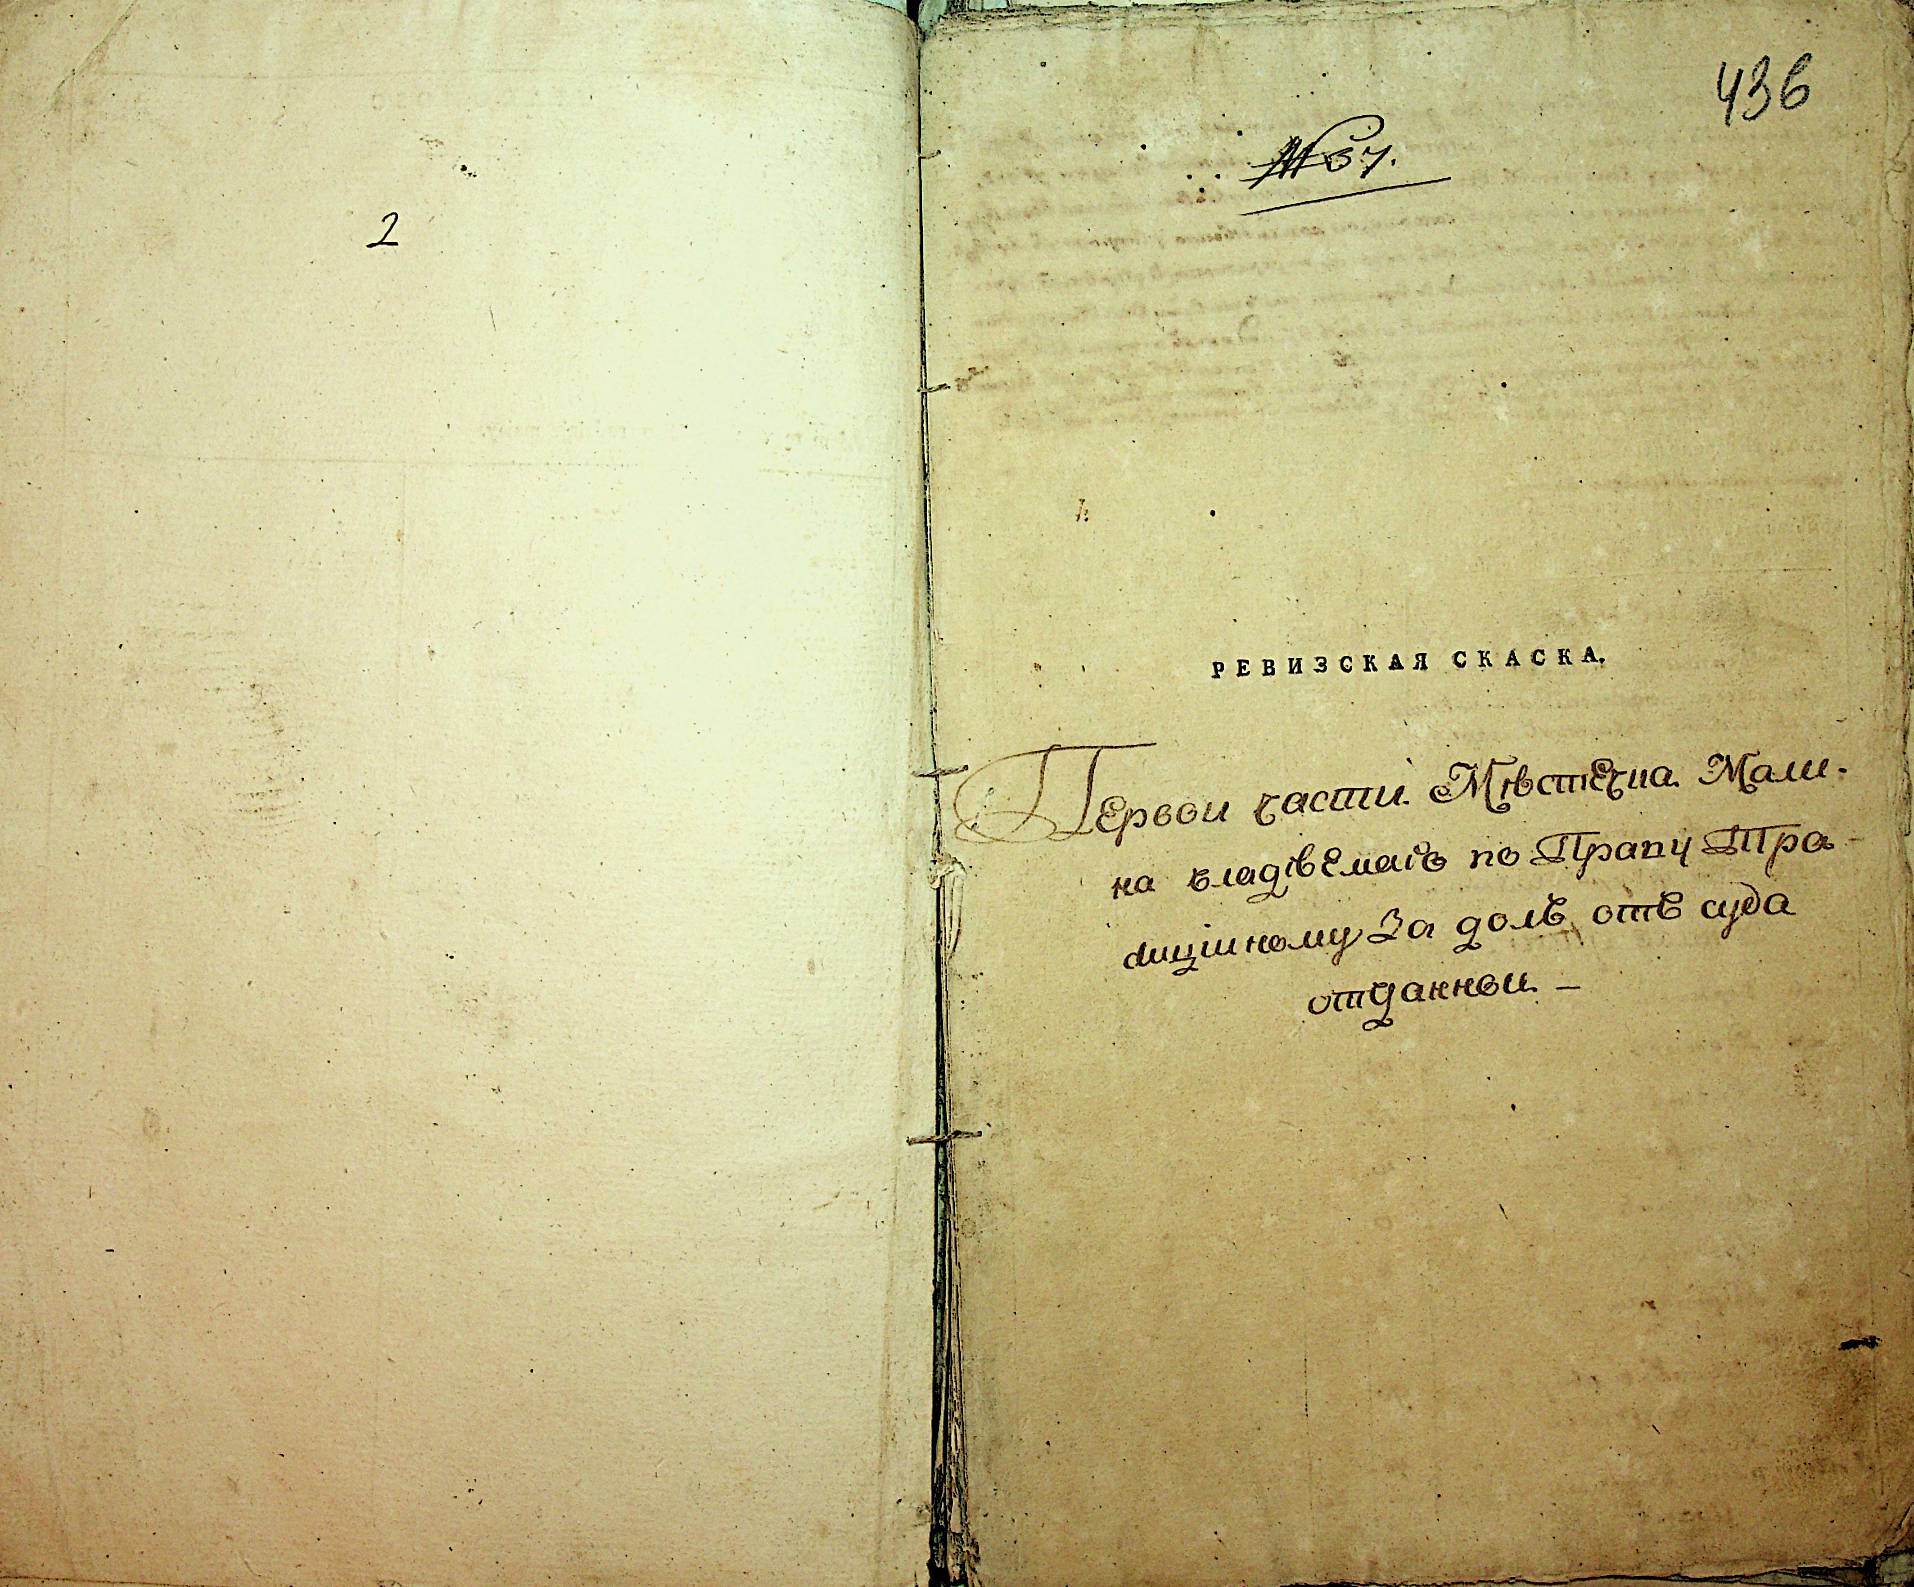 2
436
№ 67.
РЕВИЗСКАЯ СКАСКА.
Первои части Мѣстечка Мали-
на владѣемаго по Праву Тра
диціиному За долъ отъ суда
отданнои. —